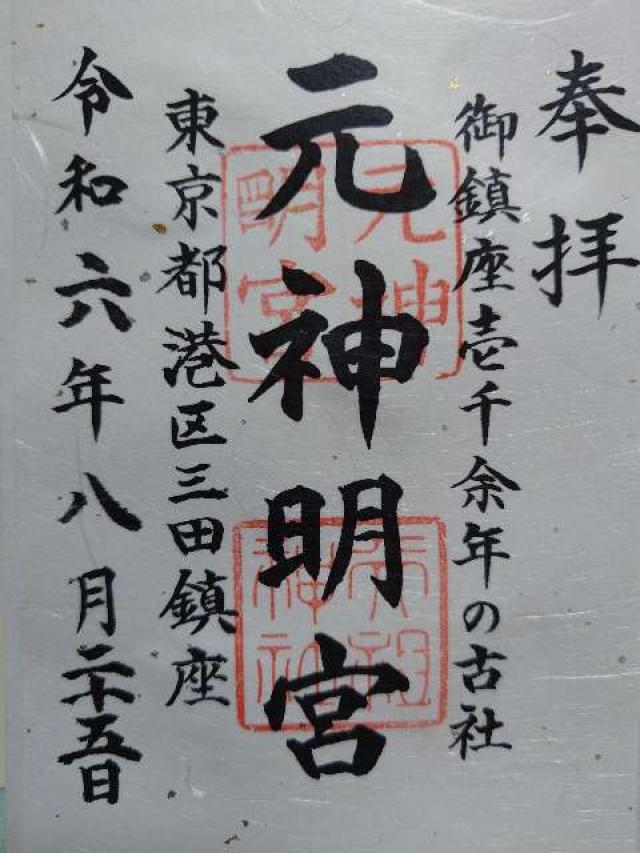 奉拝
御鎮座壱千余年の古社
元神明宮
東京都港区三田鎮座
令和六年八月二十五日
元神
明宮
天祖
神社